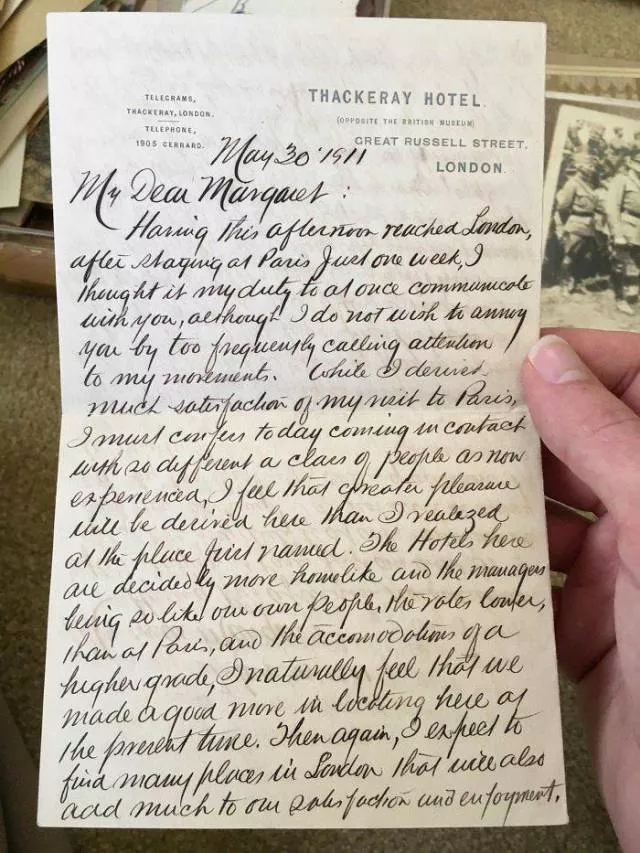 TELEGRAMS,
THACKERAY, LONDON.
TELEPHONE,
1905 GERRARD.
THACKERAY HOTEL.
(OPPOSITE THE BRITISH MUSEUM)
GREAT RUSSELL STREET.
LONDON.
May 30 '1911
My Dear Margaret:
Having this afternoon reached London,
after staying at Paris Just one week, I
thought it my duty to at once communicate
with you, although I do not wish to annoy
you by too frequently calling attention
to my movements. While I derived
much satisfaction of my visit to Paris,
I must confess today coming in contact
with so different a class of people as now
experienced, I feel that greater pleasure
will be derived here than I realized
at the place first named. The Hotels here
are decidedly more homelike and the managers
being so like our own people, the rates lower,
than at Paris, and the accomodations of a
higher grade, I naturally feel that we
made a good move in locating here at
the present time. Then again, I expect to
find many places in London that will also
add much to our satisfaction and enjoyment.